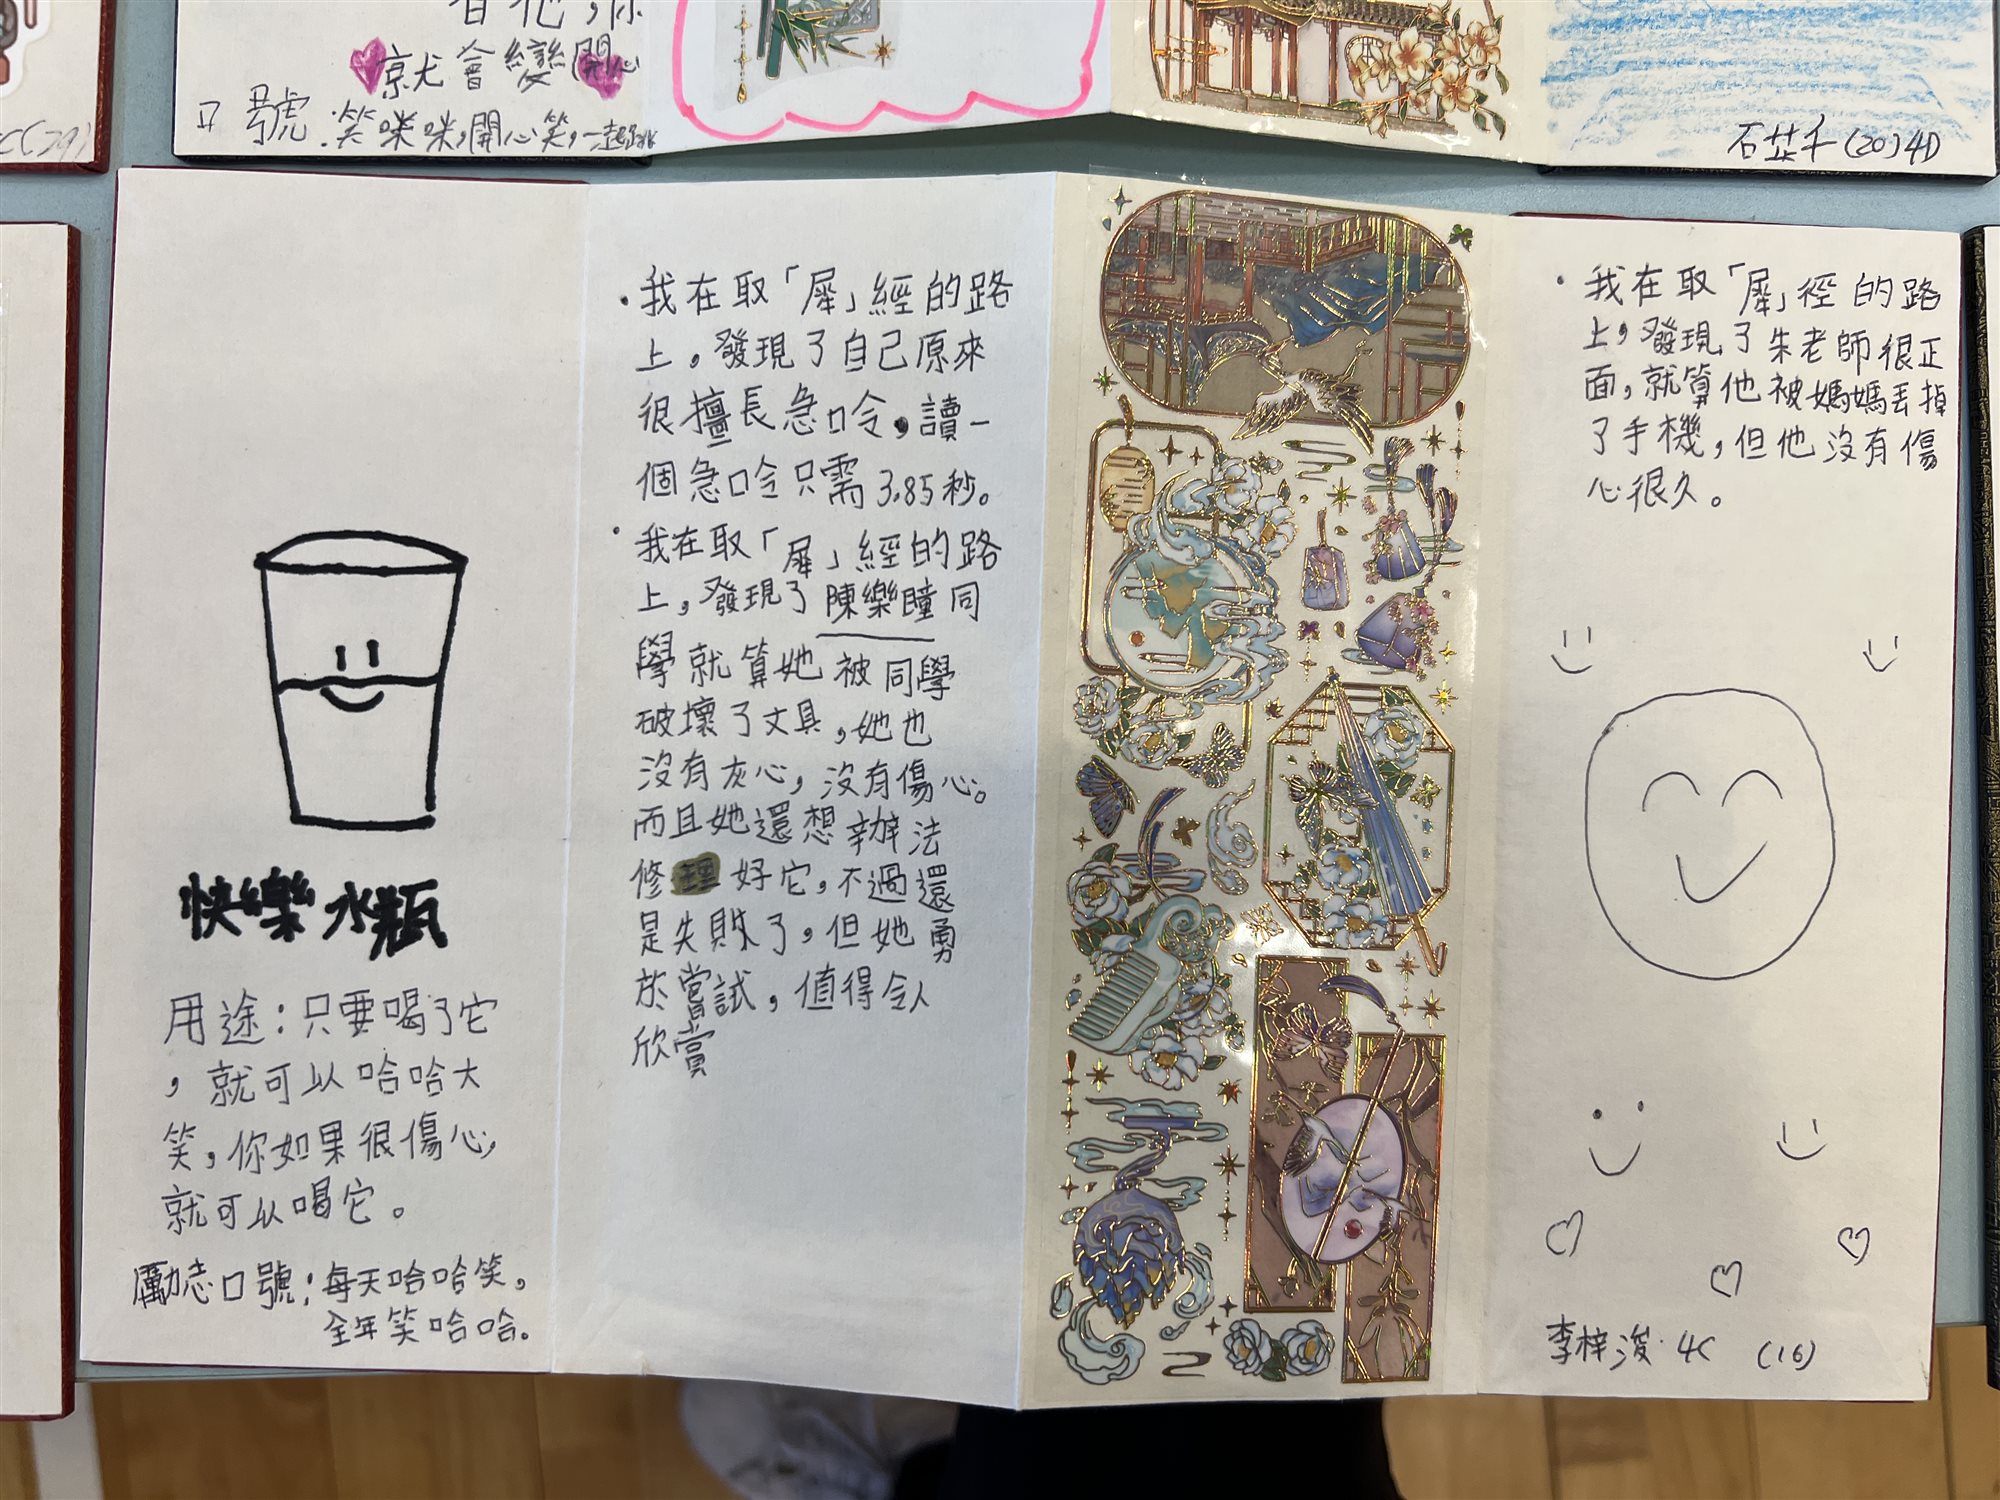 就會變開心
口號:笑咪咪,開心笑,一起
石芷千(20)4D
快樂水瓶
用途:只要喝了它
,就可以哈哈大
笑,你如果很傷心,
就可以喝它。
勵志口號:每天哈哈笑,
全年笑哈哈。
·我在取「犀」經的路
上。發現了自己原來
很擅長急口令,讀一
個急口令只需3.85秒。
·我在取「犀」經的路
上,發現了陳樂瞳同
學就算她被同學
破壞了文具,她也
沒有灰心,沒有傷心。
而且她還想辦法
修理好它,不過還
是失敗了,但她勇
於嘗試,值得令人
欣賞
·我在取「犀」徑的路
上,發現了朱老師很正
面,就算他被媽媽丟掉
了手機,但他沒有傷
心很久。
李梓浚 4C (16)